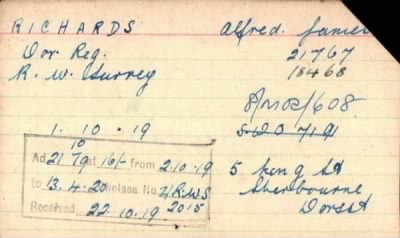 RICHARDS Alfred. James
Dor Reg. 21767
R. W. Surrey 18468
8/MR/1608.
1. 10. 19
Ad at 16/- from 2.10.19
to 13.4.20 Chelsea No.
Received 22.10.19 2015
5 Long St
Sherbourne
Dorset